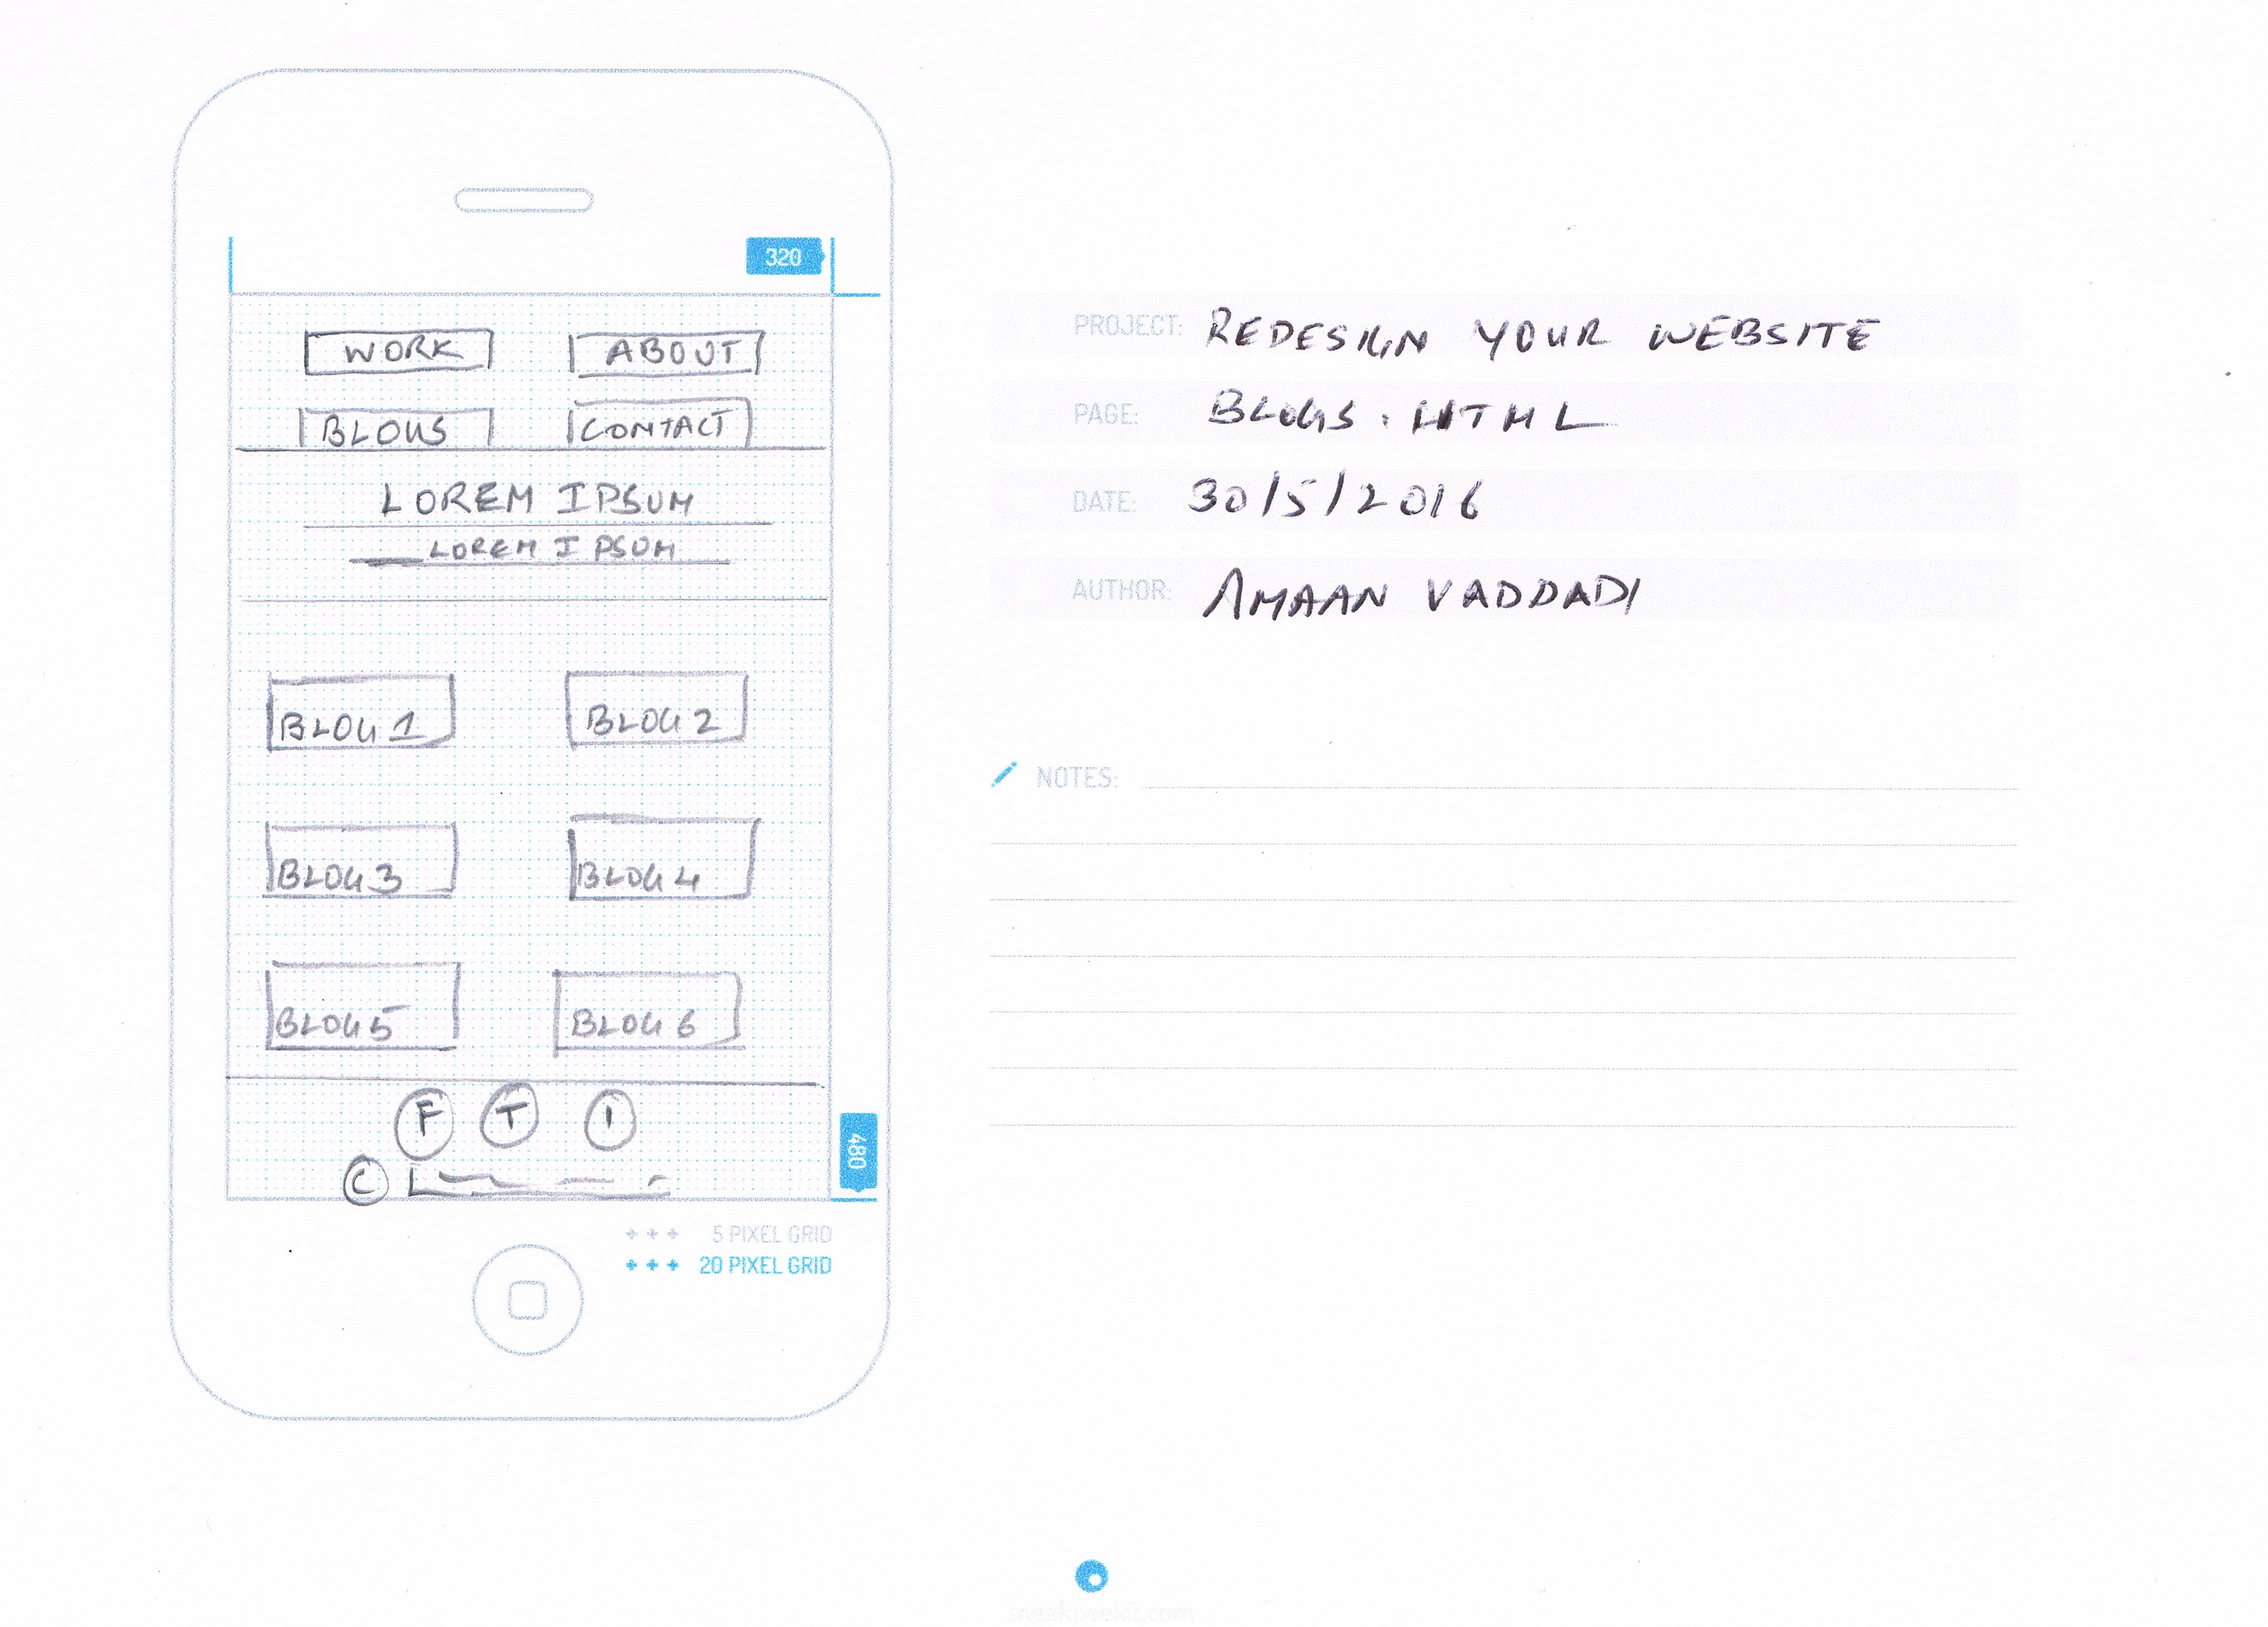 320
WORK ABOUT
BLOGS CONTACT
LOREM IPSUM
LOREM IPSUM
BLOG 1 BLOG 2
BLOG 3 BLOG 4
BLOG 5 BLOG 6
F T I
C
480
5 PIXEL GRID
20 PIXEL GRID
PROJECT: REDESIGN YOUR WEBSITE
PAGE: BLOGS.HTML
DATE: 30/5/2016
AUTHOR: AMAAN VADDADI
NOTES:
sneakpeekit.com